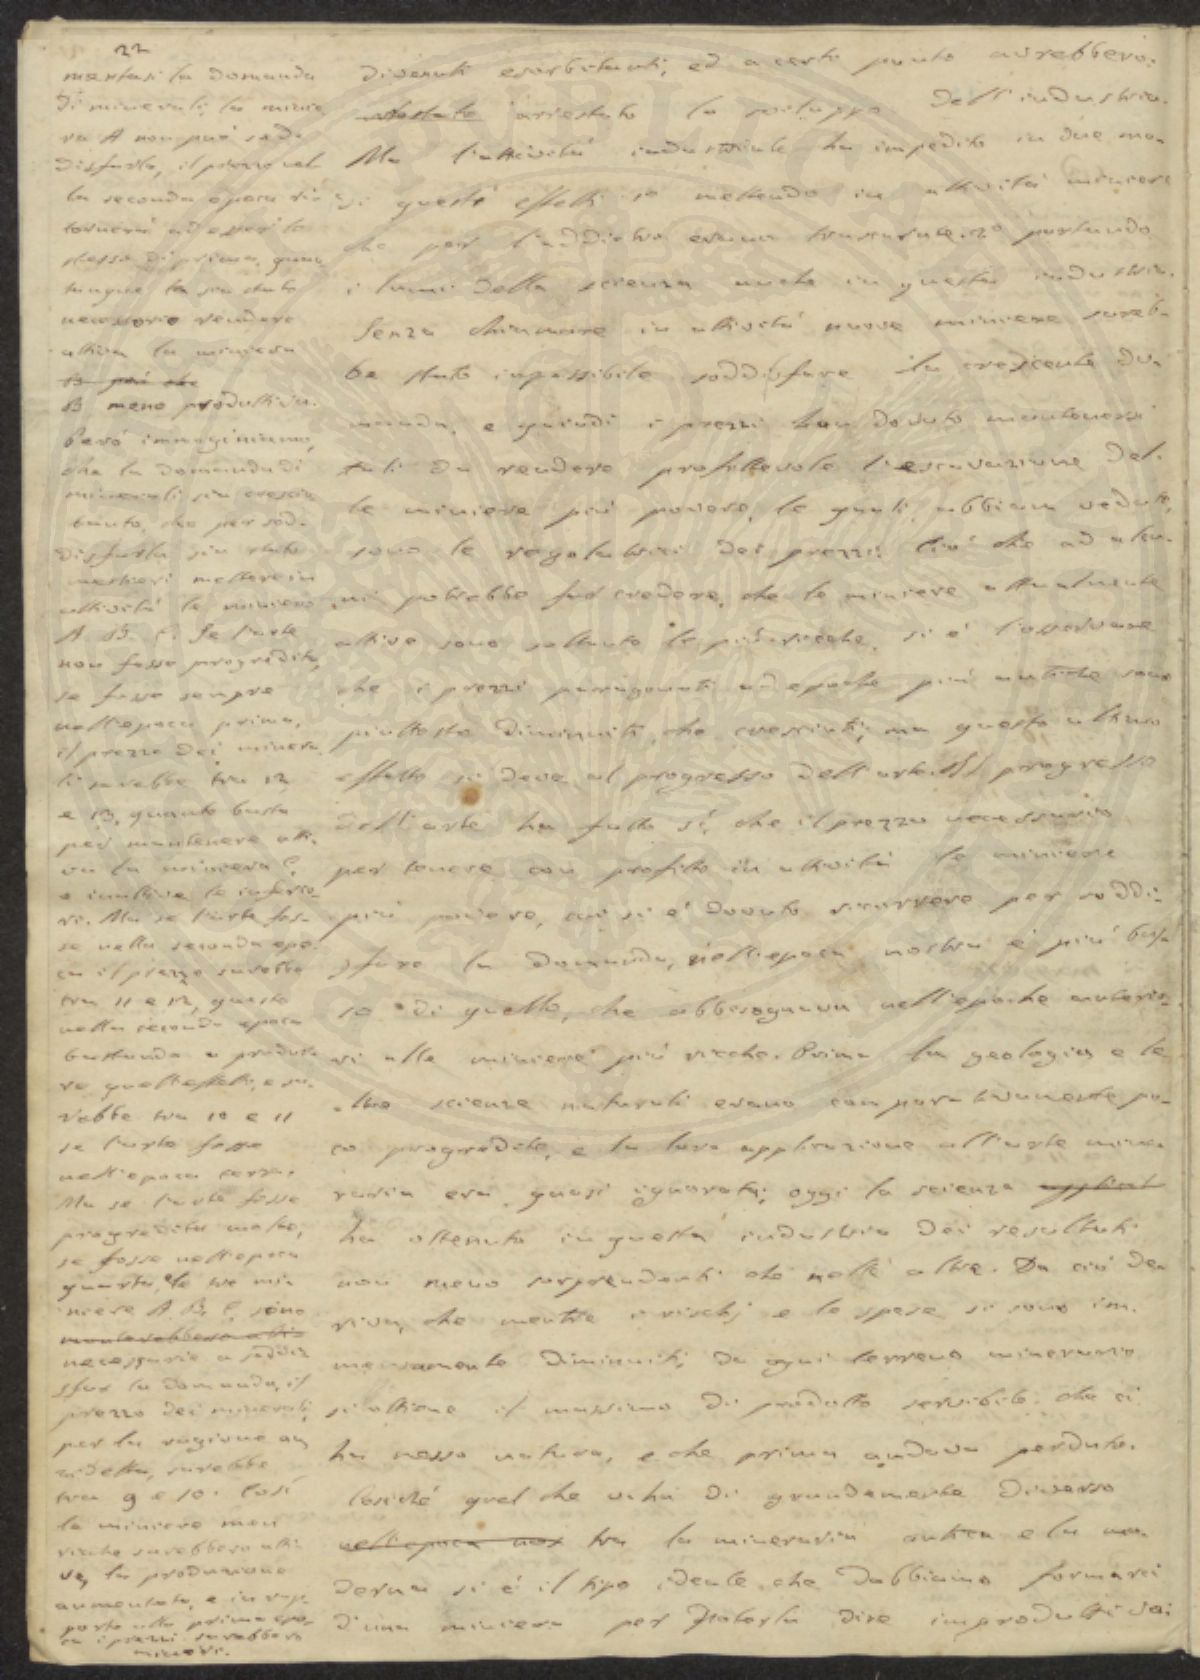 22
mentasi la domanda
di minerali; la minie
ra A non può sod-
disfarla, il prezzo nel
la seconda epoca ri-
tornerà ad esser lo
stesso di prima, quan
tunque sia stato
necessario rendere
attiva la miniera
B meno produttiva.
Però immaginiamo,
che la domanda di
minerali sia cresciu
tanto, che per sod-
disfarla sia stato
mestieri mettere in
attività le miniere
A B. C. Se l'arte
non fosse progredita,
se fosse sempre
nell'epoca prima,
il prezzo dei minera
li sarebbe tra 12
e 13, quanto basta
per mantenere atti-
va la miniera C,
e inattive le inferio-
ri. Ma se l'arte fos-
se nella seconda epo-
ca il prezzo sarebbe
tra 11 e 12, questo
nella seconda epoca
bastando a produr
re quell'effetto, e sa-
rebbe tra 10 e 11
se l'arte fosse
nell'epoca terza.
Ma se l'arte fosse
progredita molto,
se fosse nell'epoca
quarta, le tre mi-
niere A. B. C, sono
necessarie a soddi
sfar la domanda, il
prezzo dei minerali,
per la ragione an
zidetta, sarebbe
tra 9 e 10. Così
le miniere men
ricche sarebbero atti-
ve, la produzione
aumentata, e in rap-
porto alla prima epo-
ca i prezzi sarebbero
minori.
divenuti esorbitanti, ed a certo punto avrebbero
arrestato lo sviluppo dell'industria.
Ma l'attività industriale ha impedito in due mo-
di questi effetti: 1o mettendo in attività miniere
che per l'addietro erano trascurate. 2o portando
i lumi della scienza anche in questa industria.
Senza chiamare in attività nuove miniere sareb-
be stato impossibile soddisfare la crescente do-
manda, e quindi i prezzi han dovuto mantenersi
tali da rendere profittevole l'escavazione del-
le miniere più povere, le quali, abbiam veduto,
sono le regolatrici dei prezzi. Ciò che ad alcu-
ni potrebbe far credere, che le miniere attualmente
attive sono soltanto le più ricche, si è l'osservare
che i prezzi paragonati ad epoche più antiche sono
piuttosto diminuiti, che cresciuti; ma questo ultimo
effetto si deve al progresso dell'arte. Il progresso
dell'arte ha fatto sì, che il prezzo necessario
per tenere con profitto in attività le miniere
più povere, cui si è dovuto ricorrere per soddi-
sfare la domanda, nell'epoca nostra è più bas
so di quello, che abbisognava nell'epoche anterio-
ri alle miniere più ricche. Prima la geologia e le
altre scienze naturali erano comparativamente po-
co progredite, e la loro applicazione all'arte mine
raria era quasi ignorata; oggi la scienza
ha ottenuto in questa industria dei resultati
non meno sorprendenti che nelle altre. Da ciò de
riva, che mentre i rischj e le spese si sono im-
mensamente diminuiti, da ogni terreno minerario
si ottiene il massimo di prodotto servibile che ci
ha messo natura, e che prima andava perduto.
Cosicché quel che v'ha di grandemente diverso
tra la mineraria antica e la mo-
derna si è il tipo ideale che dobbiamo formarci
d'una miniera per poterla dire improduttiva: